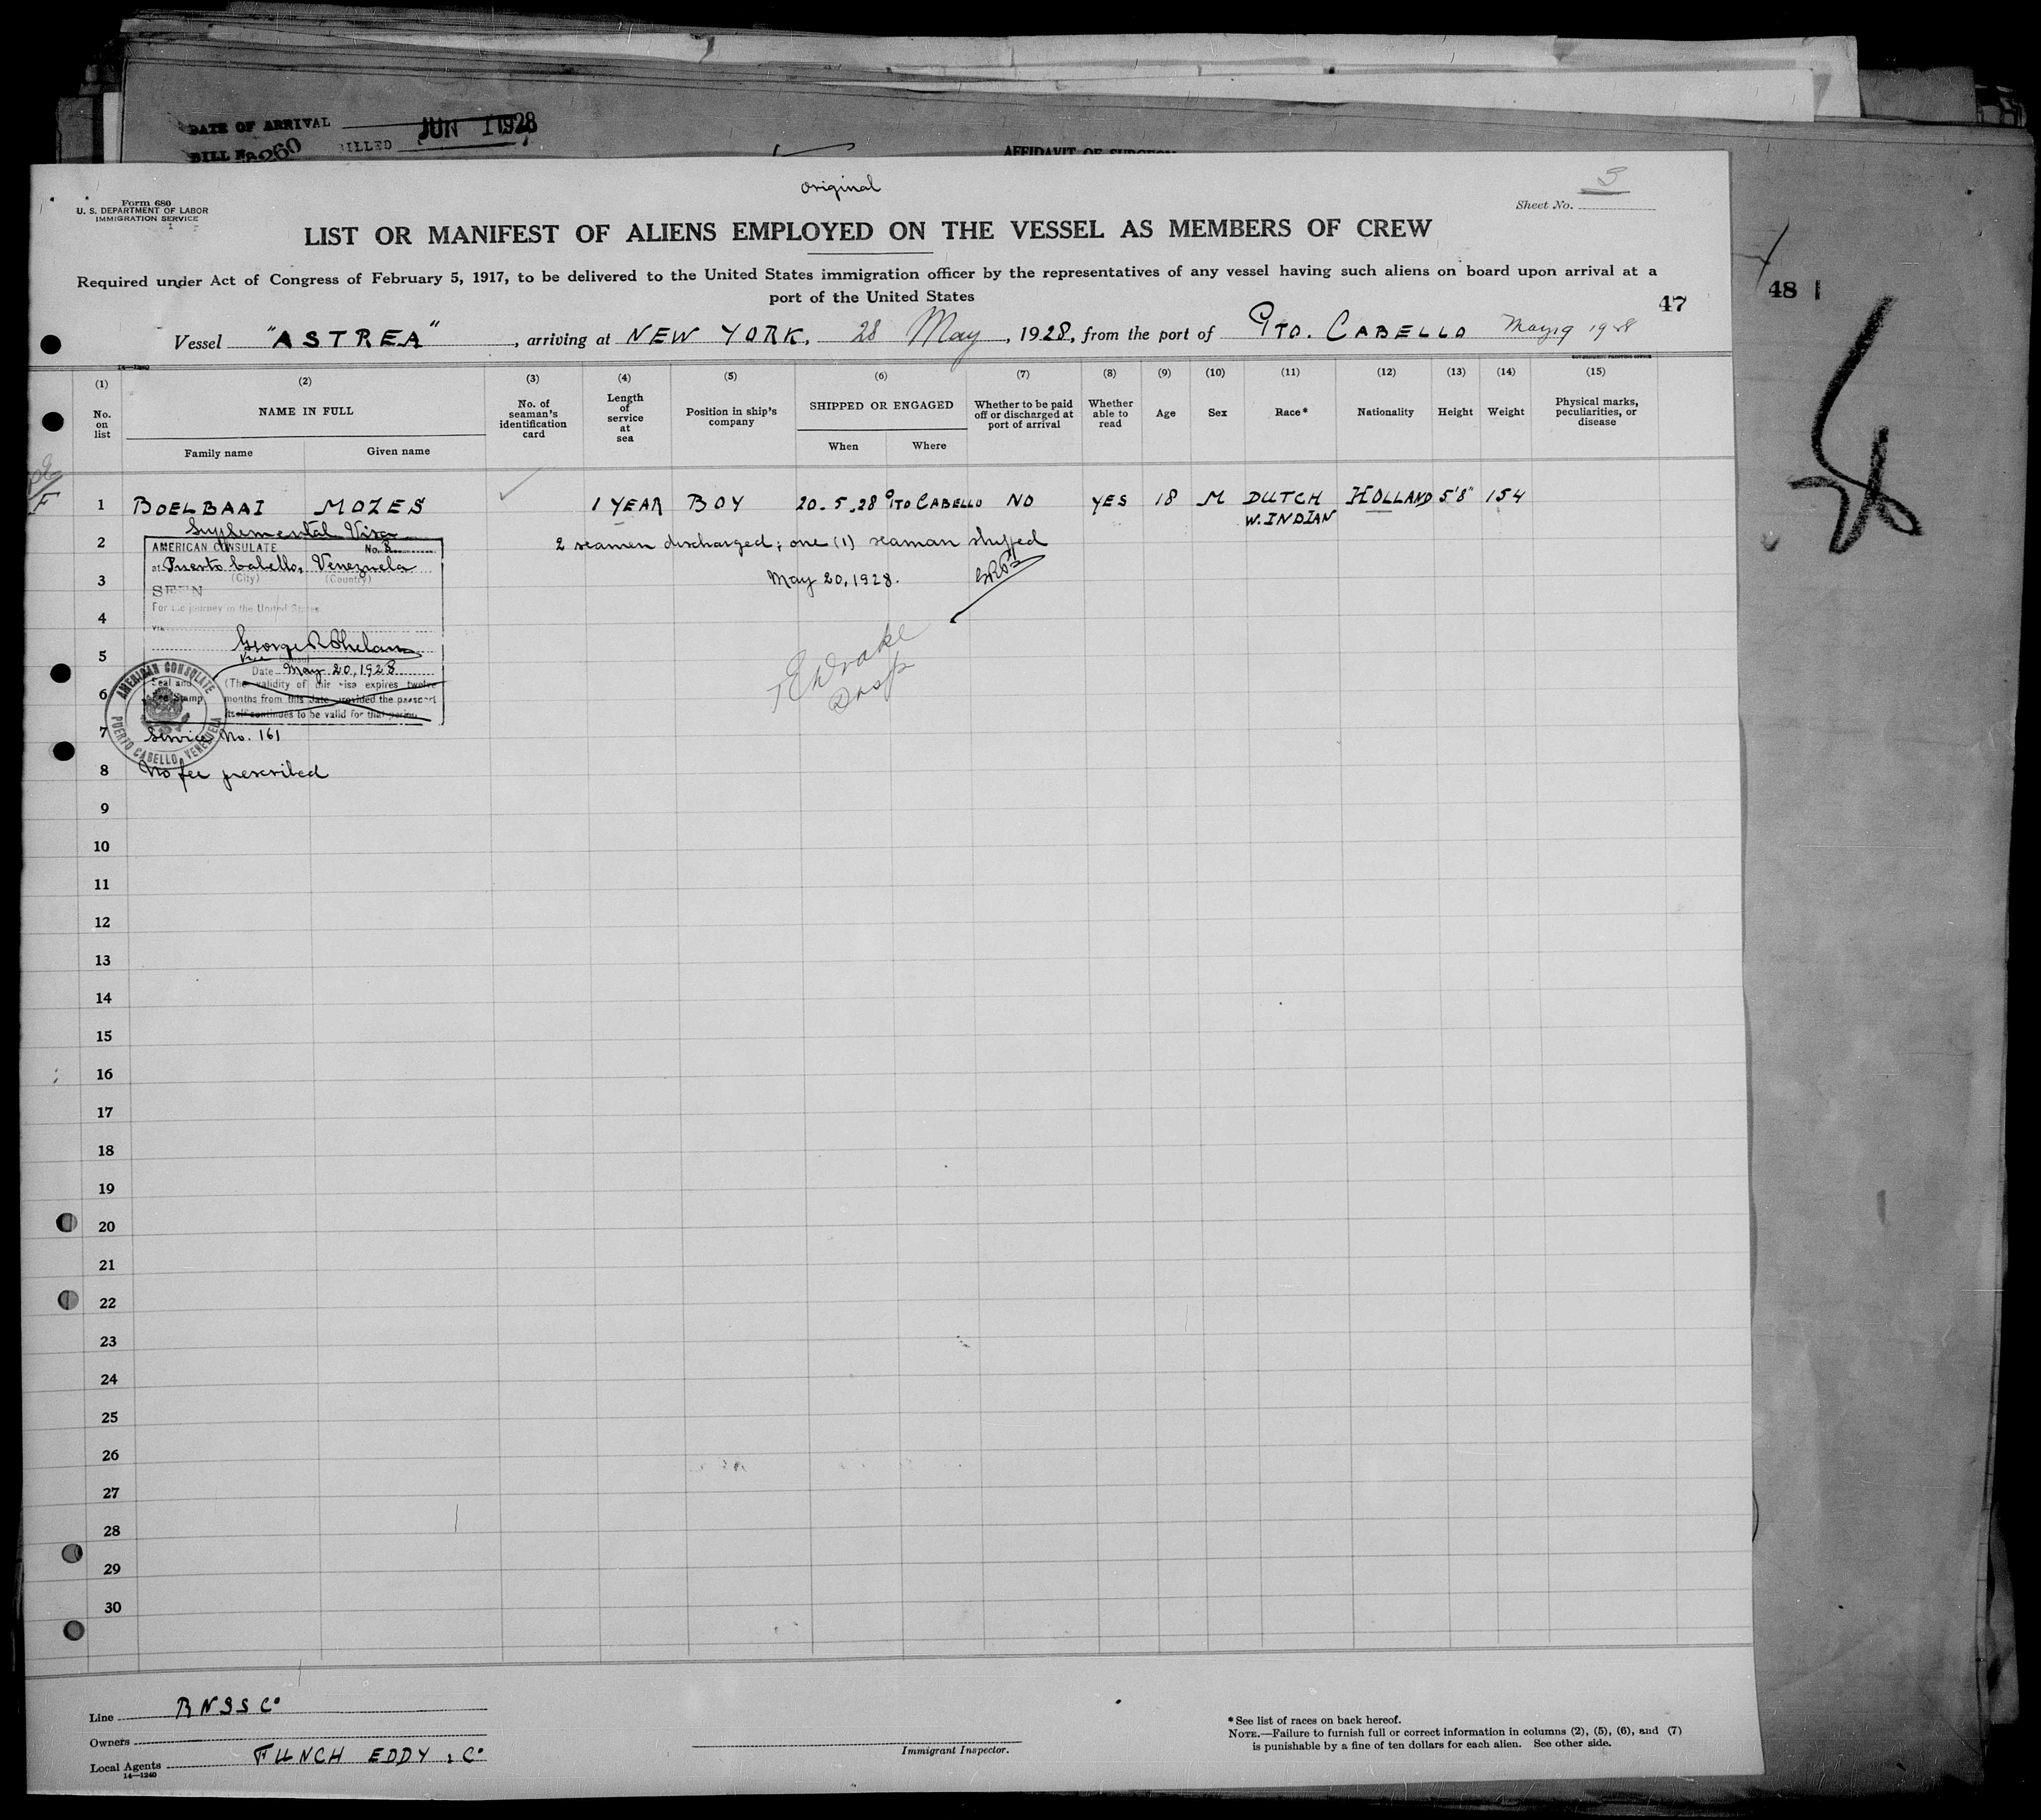 DATE OF ARRIVAL JUN 1 1928
BILL No. BILLED
AFFIDAVIT OF SURGEON
original
Form 680
U. S. DEPARTMENT OF LABOR
IMMIGRATION SERVICE
Sheet No. 3
LIST OR MANIFEST OF ALIENS EMPLOYED ON THE VESSEL AS MEMBERS OF CREW
Required under Act of Congress of February 5, 1917, to be delivered to the United States immigration officer by the representatives of any vessel having such aliens on board upon arrival at a
port of the United States
47
48
Vessel "ASTREA", arriving at NEW YORK, 28 May, 1928, from the port of PTO. CABELLO May 19 1928
14—1240
GOVERNMENT PRINTING OFFICE
(1) (2) (3) (4) (5) (6) (7) (8) (9) (10) (11) (12) (13) (14) (15)
No. on list
NAME IN FULL
Family name Given name
No. of seaman's identification card
Length of service at sea
Position in ship's company
SHIPPED OR ENGAGED
When Where
Whether to be paid off or discharged at port of arrival
Whether able to read
Age
Sex
Race*
Nationality
Height
Weight
Physical marks, peculiarities, or disease
F
1 BOELBAAI MOZES 1 YEAR BOY 20.5.28 PTO CABELLO NO YES 18 M DUTCH HOLLAND 5'8" 154
W. INDIAN
Suplemental Visa
2 2 seamen discharged; one (1) seaman shipped
AMERICAN CONSULATE No. 8
at Puerto Cabello, Venezuela
(City) (Country)
3 May 20, 1928. GRP
SEEN
For the journey to the United States
4
via
George R Phelan
5
Vice
Date May 20, 1928
Seal and Fee Stamp
(The validity of this visa expires twelve
6
months from this date provided the passport
itself continues to be valid for that period.
AMERICAN CONSULATE
PUERTO CABELLO, VENEZUELA
7 Service No. 161
8 No fee prescribed
9
10
11
12
13
14
15
16
17
18
19
20
21
22
23
24
25
26
27
28
29
30
Line RNSS Co
Owners
Local Agents FUNCH EDDY & Co
14—1240
Immigrant Inspector.
*See list of races on back hereof.
NOTE.—Failure to furnish full or correct information in columns (2), (5), (6), and (7)
is punishable by a fine of ten dollars for each alien. See other side.